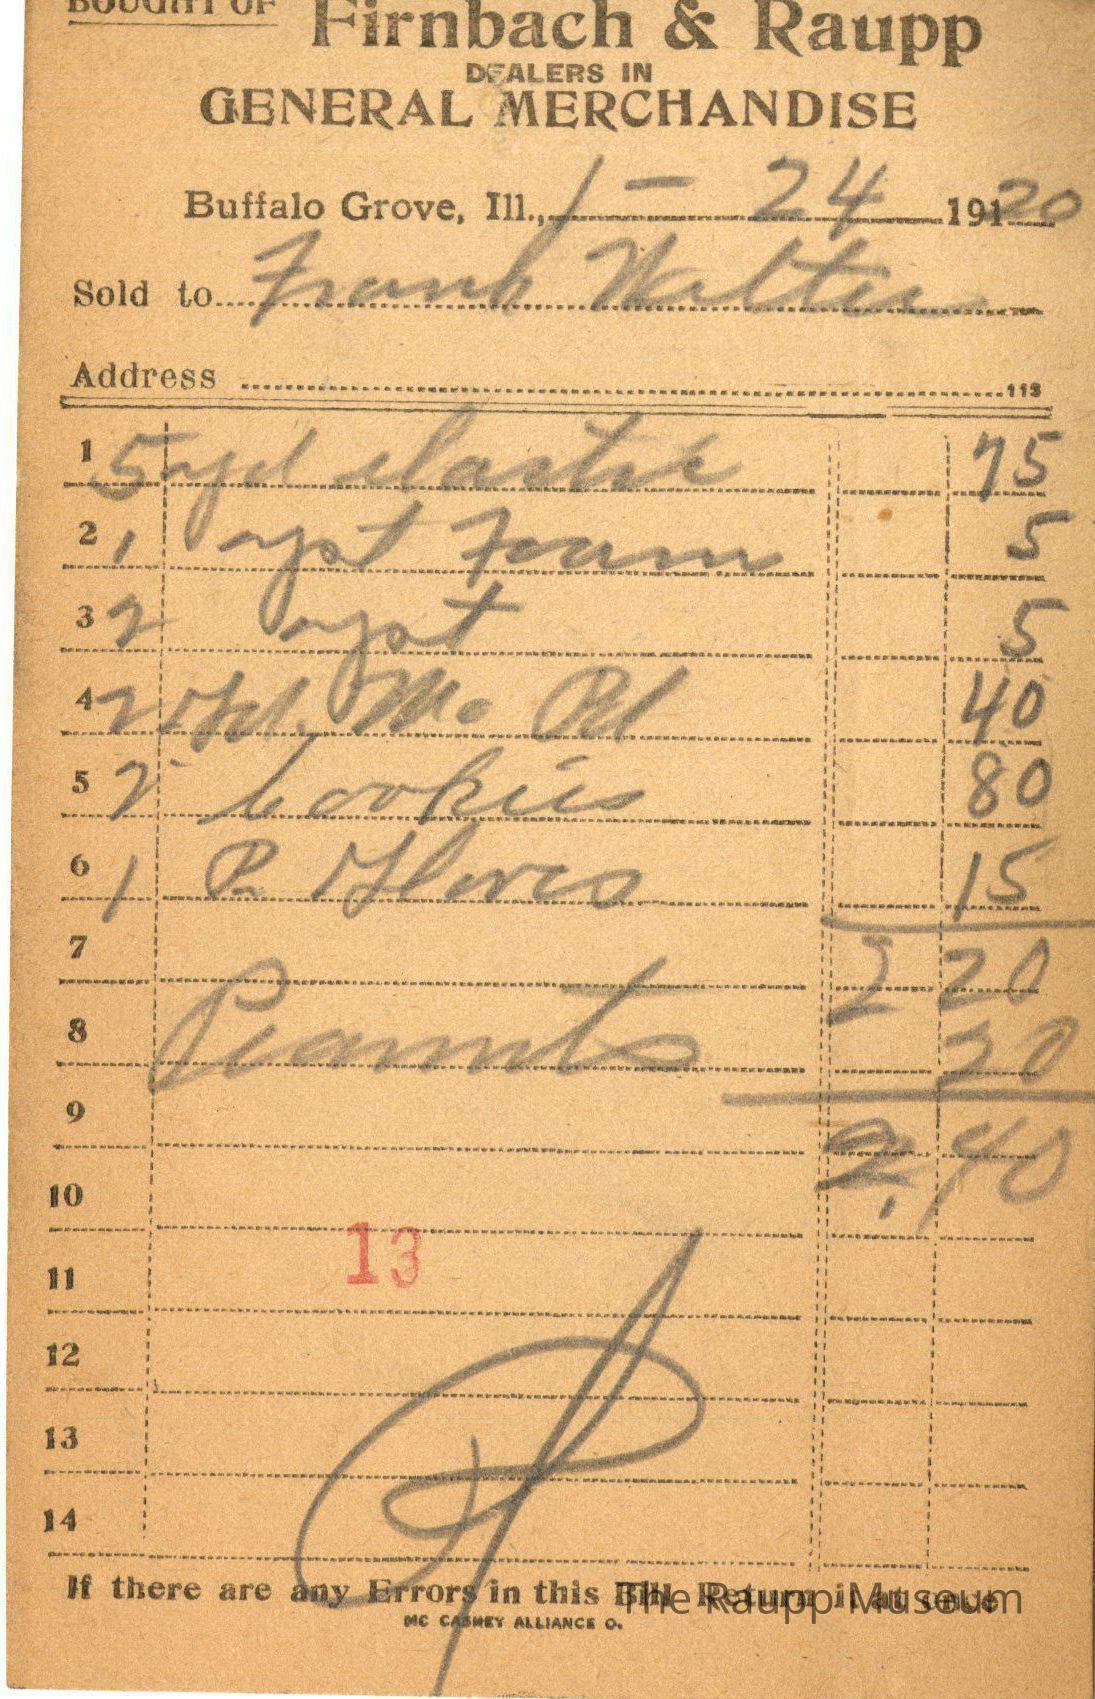 BOUGHT OF Firnbach & Raupp
DEALERS IN
GENERAL MERCHANDISE
Buffalo Grove, Ill., 1 - 24 191 20
Sold to Frank Walter
Address 113
1 5 yd elastic 75
2 1 yst Foam 5
3 2 yst 5
4 2 40
5 2 Cookies 80
6 1 P. Gloves 15
7 2 20
8 Peanuts 20
9 2,40
10
11 13
12
13
14
If there are any Errors in this Bill Return it at once
MC CASKEY ALLIANCE O.
The Raupp Museum